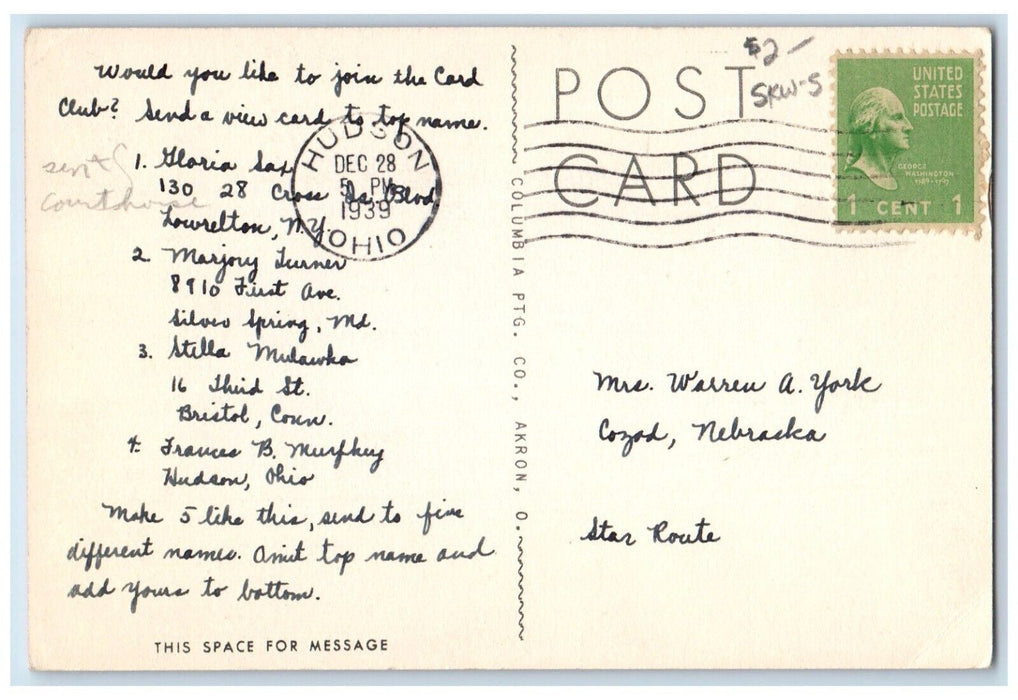 Would you like to join the Card
Club? Send a view card to top name.
1. Gloria Sax
130 28 Cross Is. Blvd
Lowrelton, N.Y.
2. Marjory Turner
8910 First Ave.
Silver Spring, Md.
3. Stella Mulawka
16 Third St.
Bristol, Conn.
4. Frances B. Murphey
Hudson, Ohio
Make 5 like this, send to five
different names. Omit top name and
add yours to bottom.
THIS SPACE FOR MESSAGE
sent
Courthouse
HUDSON
DEC 28
5 PM
1939
OHIO
COLUMBIA PTG. CO., AKRON, O.
POST
CARD
$2 —
SKW-5
UNITED
STATES
POSTAGE
GEORGE
WASHINGTON
1789-1797
1 CENT 1
Mrs. Warren A. York
Cozad, Nebraska
Star Route